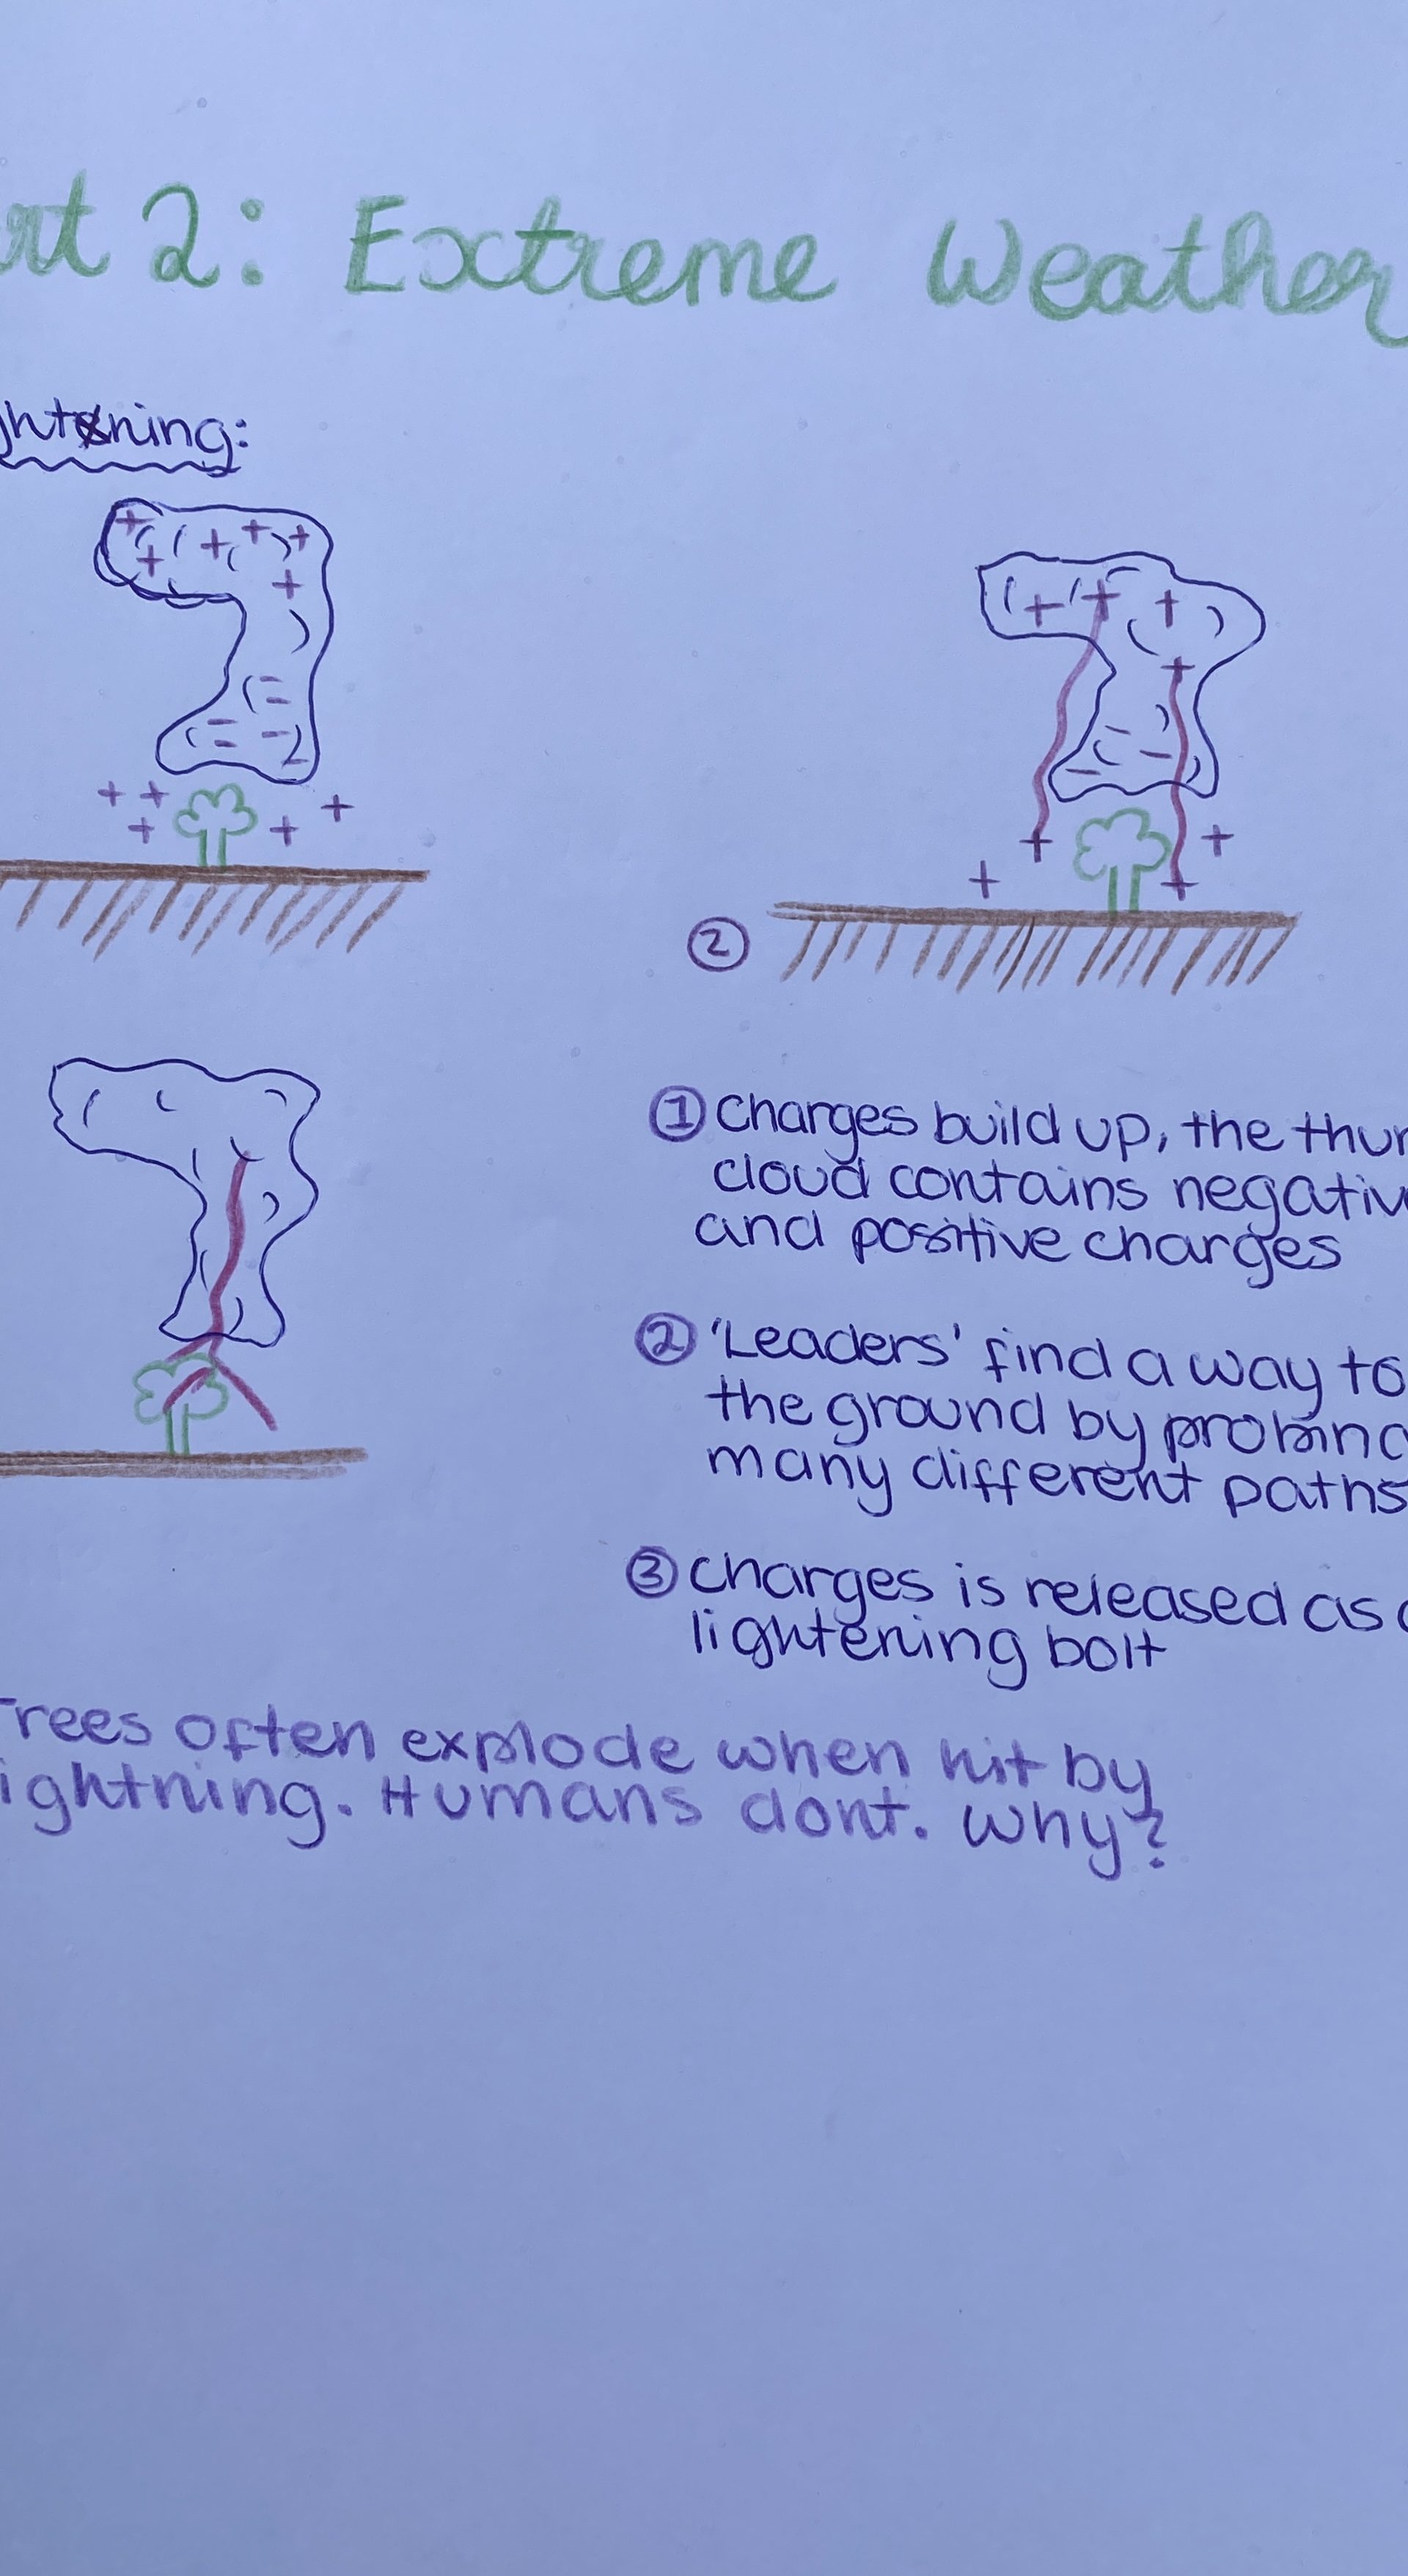 rt 2: Extreme Weather
ghtning:
②
① Charges build up, the thun
cloud contains negative
and positive charges
② 'Leaders' find a way to
the ground by probing
many different paths
③ charges is released as a
lightening bolt
Trees often explode when hit by
lightning. Humans dont. Why?